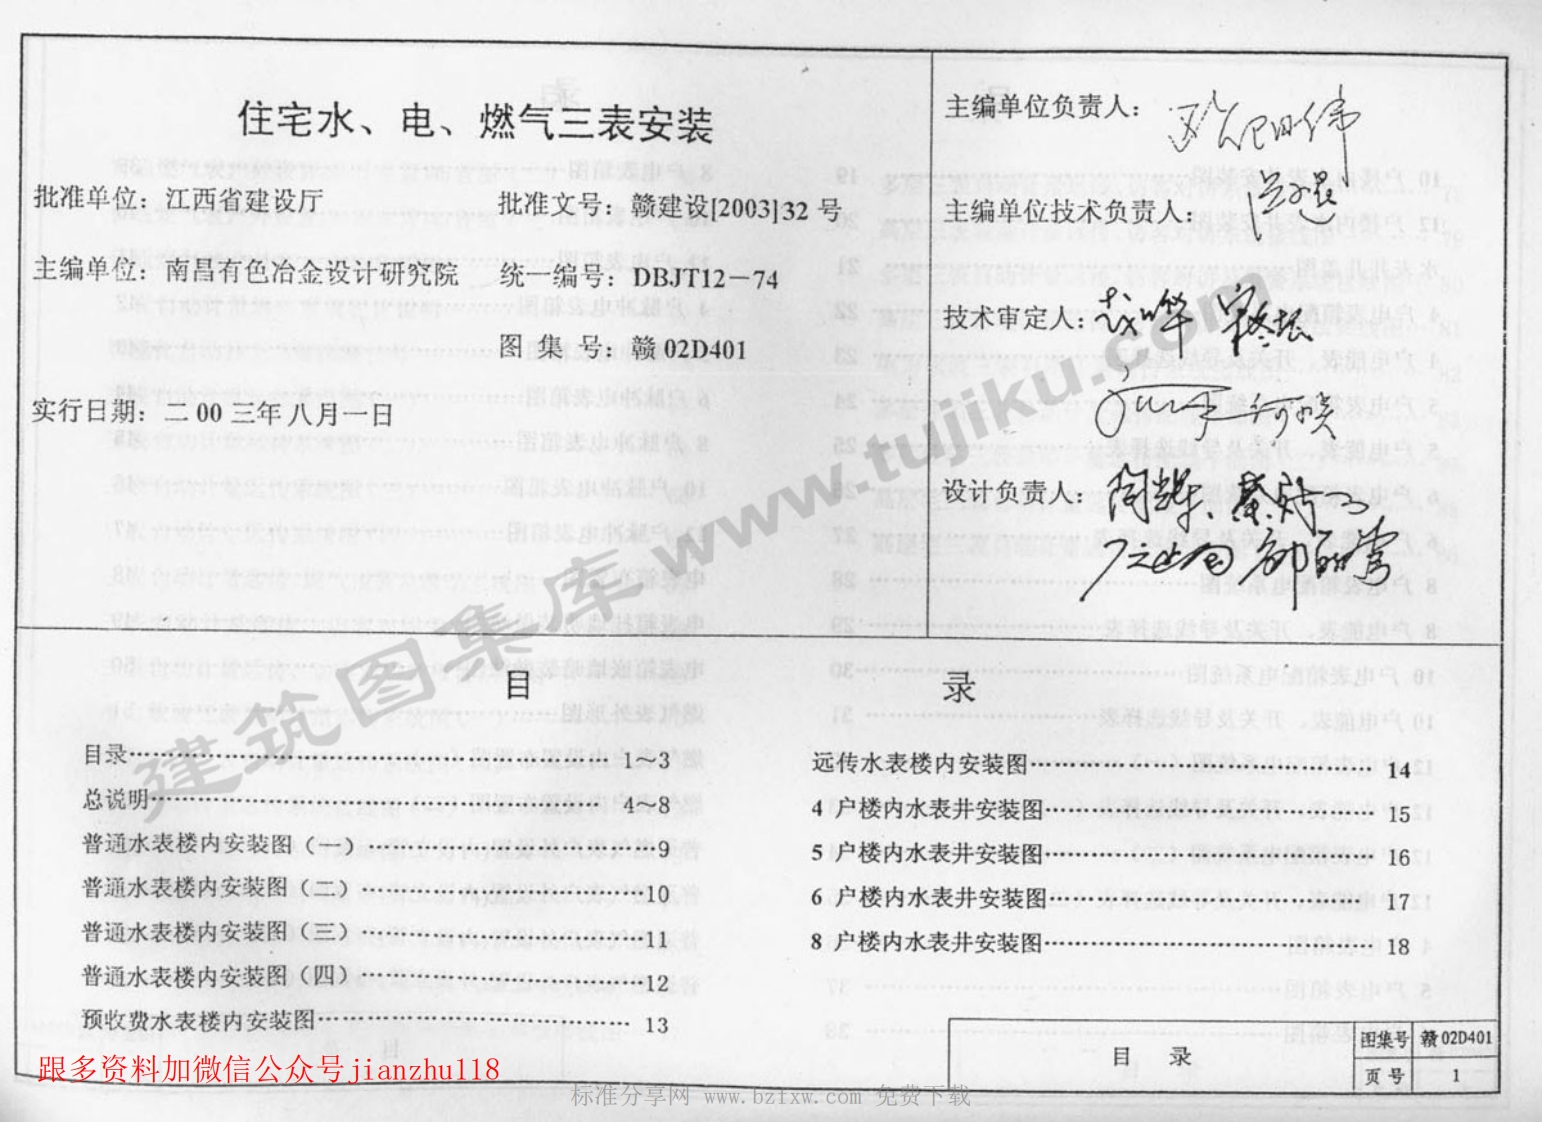 住宅水、电、燃气三表安装
批准单位：江西省建设厅 批准文号：赣建设[2003]32 号
主编单位：南昌有色冶金设计研究院 统一编号：DBJT12－74
图 集 号：赣 02D401
实行日期：二 00 三年 八月一日
主编单位负责人：
主编单位技术负责人：
技术审定人：
设计负责人：
目 录
目录 1～3
总说明 4～8
普通水表楼内安装图（一） 9
普通水表楼内安装图（二） 10
普通水表楼内安装图（三） 11
普通水表楼内安装图（四） 12
预收费水表楼内安装图 13
远传水表楼内安装图 14
4 户楼内水表井安装图 15
5 户楼内水表井安装图 16
6 户楼内水表井安装图 17
8 户楼内水表井安装图 18
目 录
图集号 赣 02D401
页 号 1
建筑图集库 www.tujiku.com
跟多资料加微信公众号jianzhu118
标准分享网 www.bzfxw.com 免费下载